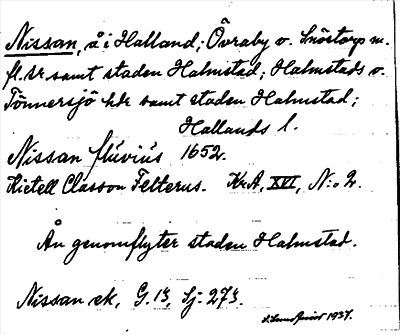 Nissan, å i Halland; Övraby o. Snöstorp m.
fl. sr samt staden Halmstad; Halmstads o.
Tönnersjö hdr samt staden Halmstad;
Hallands l.
Nissan flúviús 1652.
Kietell Classon Felterus. KrA, XVI, N:o 2.
Ån genomflyter staden Halmstad.
Nissan ek, G.13, Sj. 273.
1937.